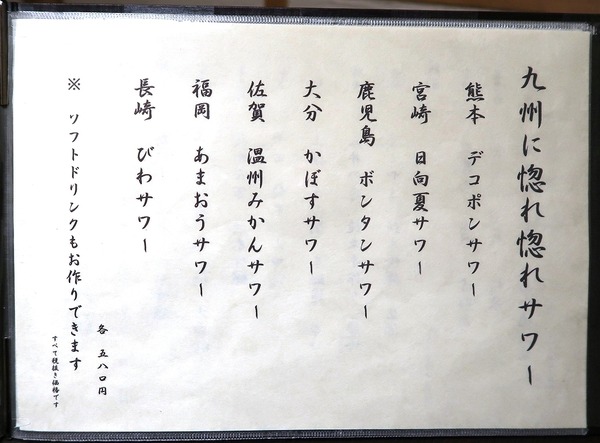 九州に惚れ惚れサワー
熊本 デコポンサワー
宮崎 日向夏サワー
鹿児島 ボンタンサワー
大分 かぼすサワー
佐賀 温州みかんサワー
福岡 あまおうサワー
長崎 びわサワー
各 五八〇円
※ ソフトドリンクもお作りできます
すべて税抜き価格です